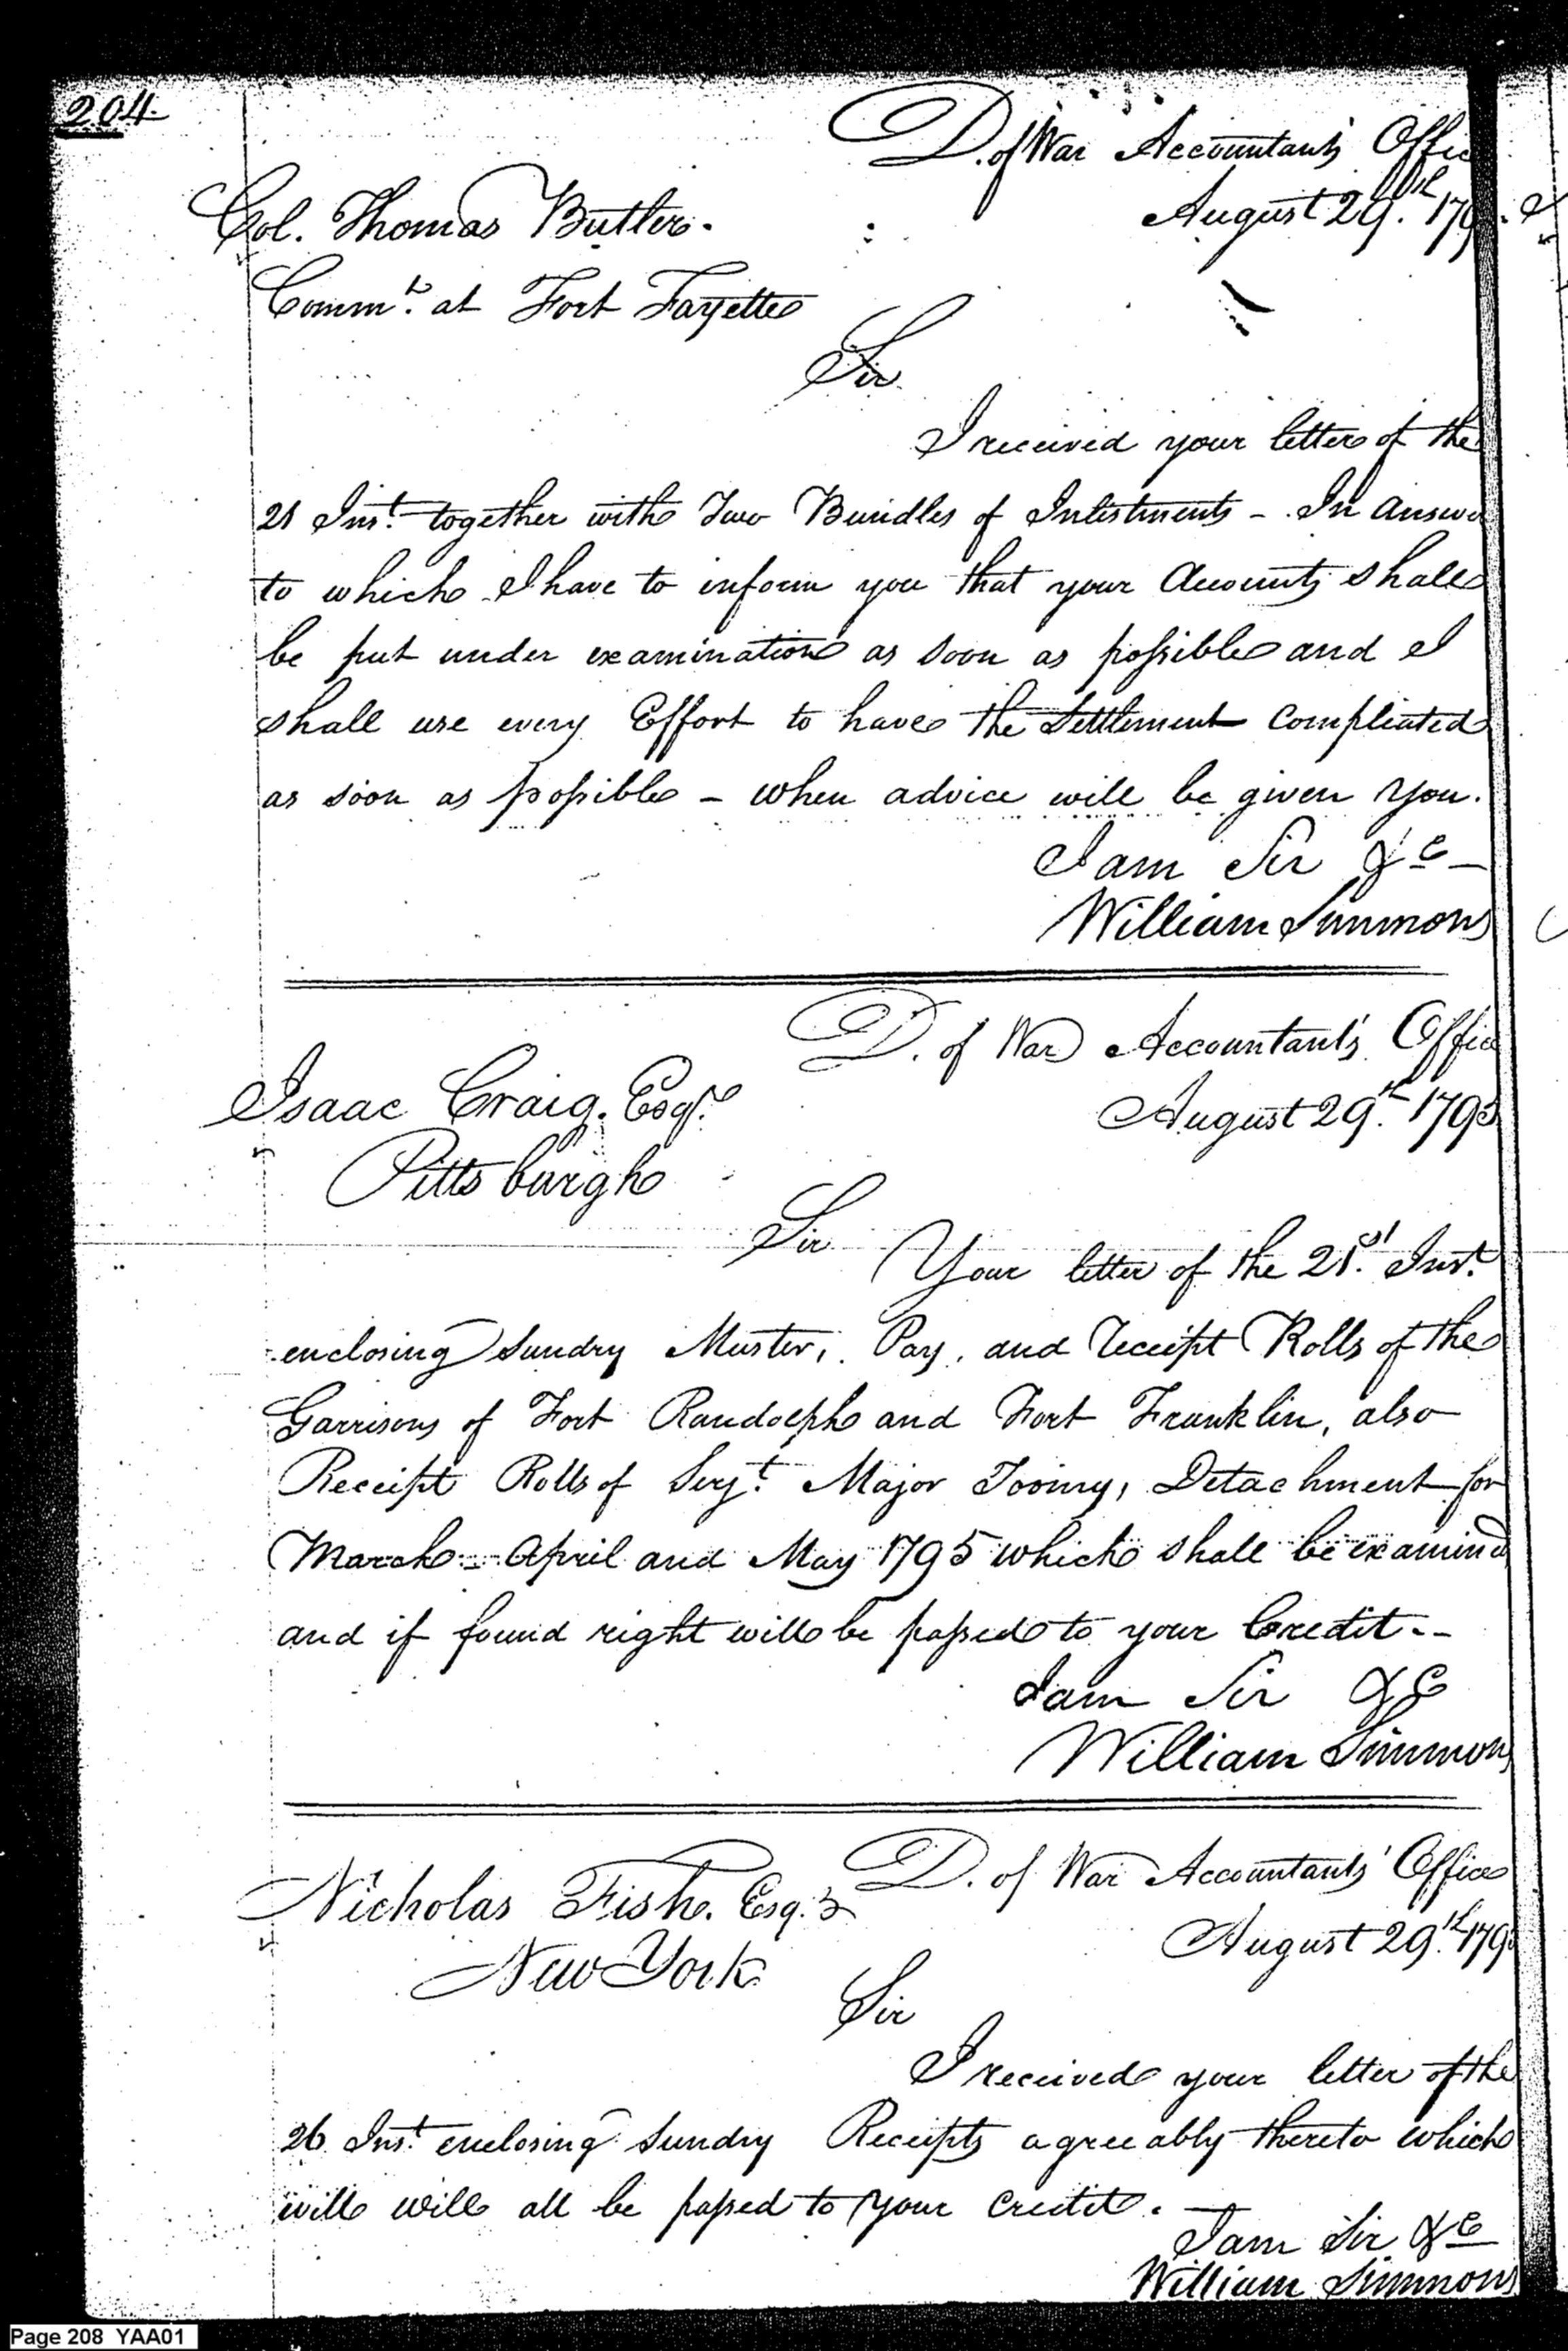 204.
D. of War Accountants Offic
August 29.th 179
Col. Thomas Butler.
Comm.t at Fort Fayette
Sir
I received your letter of the
21 Ins.t together with Two Bundles of Inlistments - In answe
to which I have to inform you that your Accounts shall
be put under examination as soon as possible and I
shall use every Effort to have the Settlement Compleated
as soon as possible - when advice will be given you.
I am Sir &c -
William Simmons
D. of War Accountant's Office
August 29.th 1795
Isaac Craig. Esqr.
Pittsburgh
Sir
Your letter of the 21.st Inst.
enclosing Sundry Muster, Pay, and Receipt Rolls of the
Garrisons of Fort Randolph and Fort Franklin, also
Receipt Rolls of Serj.t Major Toomy, Detachment for
March - April and May 1795 which shall be examined
and if found right will be passed to your Credit. -
I am Sir &c
William Simmon
D. of War Accountants' Office
August 29.th 179
Nicholas Fish. Esq.
New York
Sir
I received your letter of the
26 Ins.t enclosing Sundry Receipts agreeably thereto which
will will all be passed to your credit. -
I am Sir &c
William Simmons
Page 208 YAA01